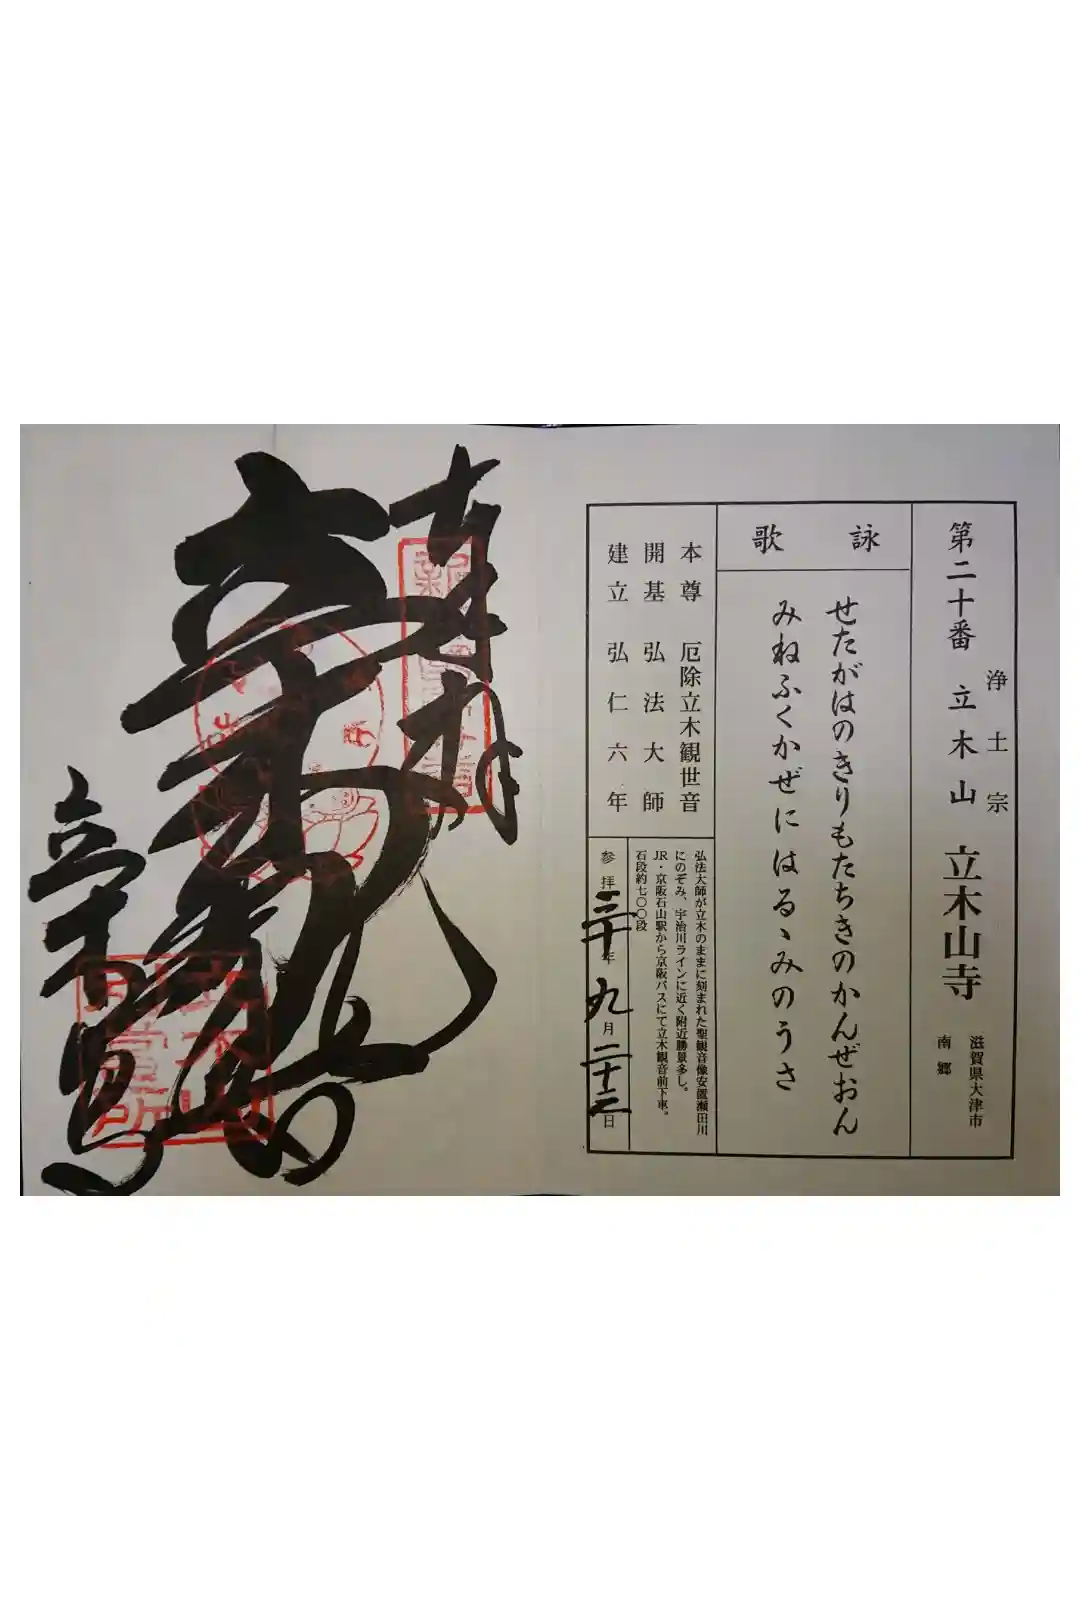 浄土宗
第二十番 立木山 立木山寺
滋賀県大津市
南郷
詠歌
せたがはのきりもたちきのかんぜおん
みねふくかぜにはるゝみのうさ
本尊 厄除立木観世音
開基 弘法大師
建立 弘仁六年
弘法大師が立木のままに刻まれた聖観音像安置瀬田川
にのぞみ、宇治川ラインに近く附近勝景多し。
JR・京阪石山駅から京阪バスにて立木観音前下車。
石段約七〇〇段
参拝三十年九月二十三日
奉拝
立木
立木山